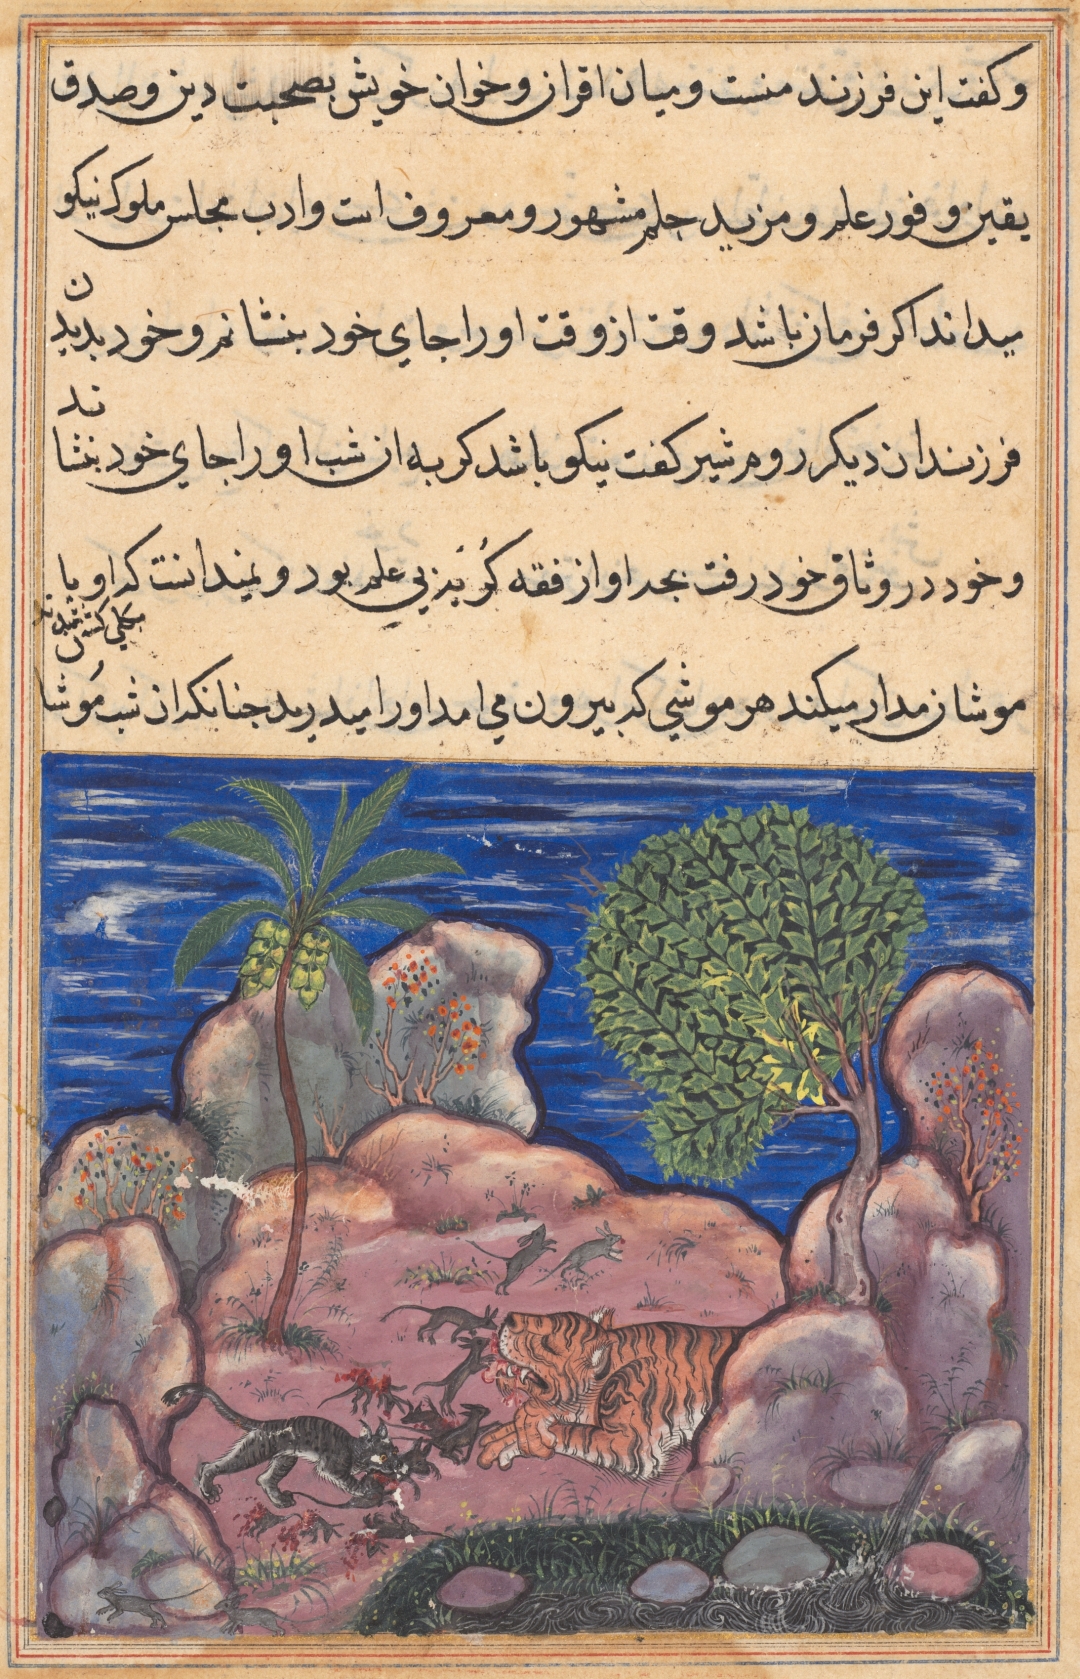 و کفت این فرزند منست و میان اقران و خوان خویش بصحبت دین و صدق
یقین و فور علم و مزید حلم مشهور و معروف است و ادب مجلس ملوک نیکو
میداند اکر فرمان باشد وقت از وقت او را جای خود بنشانم و خود بدیدن
فرزندان دیکر روم شیر کفت نیکو باشد کربه ان شب او را جای خود بنشاند
و خود در وثاق خود رفت بچه او از فقه کُربزیی علم بود و نمیدانست که او با
موشان مدار میکند هر موشی که بیرون می امد او را میدرید چنانکه ان شب موشان
بکلی کشته شدند